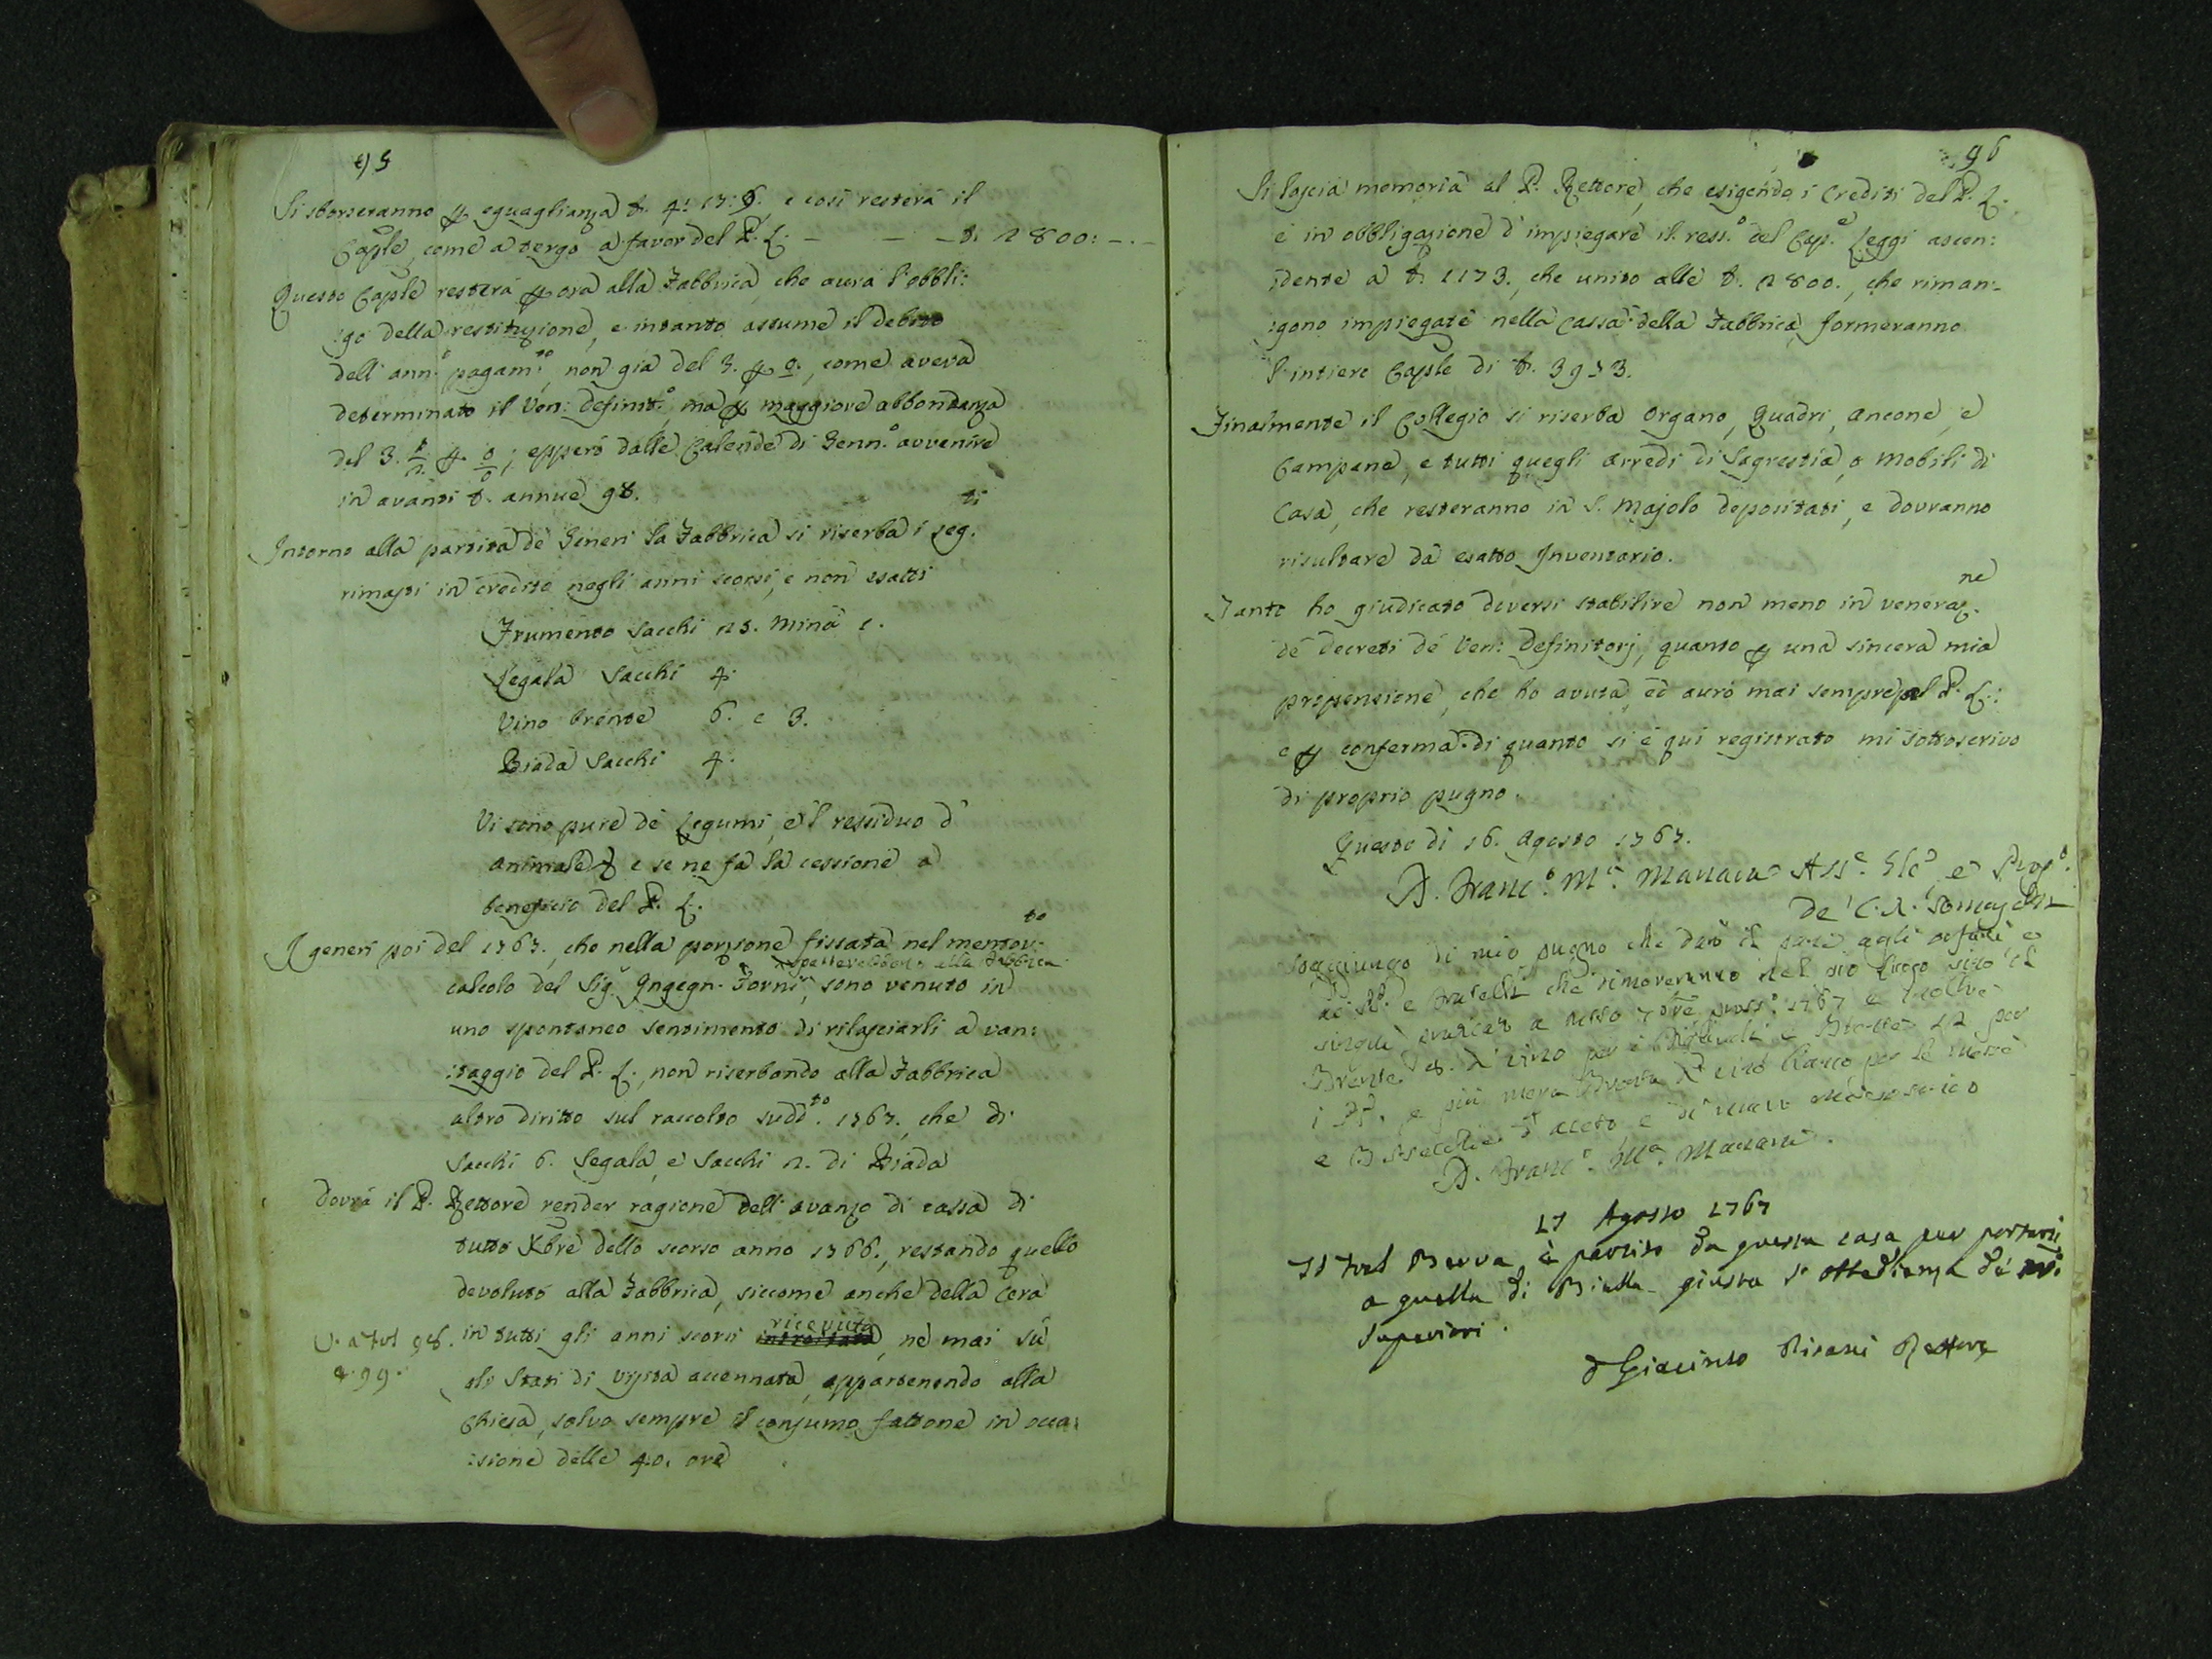 95
Si sborseranno p eguaglianza £. 4: 17: 6., e così resterà il
Caple, come a tergo a favor del P. L. — — — £. 2800: —. —
Questo Caple resterà p ora alla Fabbrica, che avrà l'obbli:
:go della restituzione, e intanto assume il debito
dell' ann.o pagam.to, non già del 3. p 0., come aveva
determinato il Ven: Definit.o, ma p maggiore abbondanza
del 3. 1/2 p 0/0; epperò dalle Calende di Genn.o avvenire
in avanti £. annue 98.
Intorno alla partita de Generi la Fabbrica si riserba i seg.ti
rimasti in credito negli anni scorsi, e non esatti
Frumento Sacchi 25. Mina 1.
Segala Sacchi 4.
Vino brente 6. e 3.
Biada Sacchi 4.
Vi sono pure de Legumi, e 'l residuo d'
animale e se ne fa la cessione a
beneficio del P. L.
I generi poi del 1767., che nella porzione fissata nel mentov.to
spettevebbono alla Fabbrica
calcolo del Sig.r Ingegn.o Forni, sono venuto in
uno spontaneo sentimento di rilasciarli a van:
:taggio del P. L., non riserbando alla Fabbrica
altro diritto sul raccolto sudd.to 1767., che di
Sacchi 6. Segala, e Sacchi 2. di Biada
Dovrà il P. Rettore render ragione dell' avanzo di cassa di
tutto Xbre dello scorso anno 1766., restando quello
devoluto alla Fabbrica, siccome anche della Cera
ricevuta
V. a fol 98. in tutti gli anni scorsi, nè mai sù
e 99. gli Stati di visita accennata, appartenendo alla
Chiesa, salvo sempre il consumo fattone in occa:
:sione delle 40. ore
96
Si lascia memoria al P. Rettore, che esigendo i Crediti del P. L.
è in obbligazione d' impiegare il ress.o del Cap.e Leggi ascen:
:dente a £. 1173., che unito alle £. 2800., che riman:
:gono impiegate nella Cassa della Fabbrica, formeranno
l' intiero Caple di £. 3973.
Finalmente il Collegio si riserba Organo, Quadri, Ancone, e
Campane, e tutti quegli arredi di Sagrestia, o Mobili di
Casa, che resteranno in S. Majolo depositati, e dovranno
risultare da esatto Inventario.
Tanto ho giudicato doversi stabilire non meno in veneraz.ne
de Decreti de Ven: Definitorj, quanto p una sincera mia
propensione, che ho avuta, ed avrò mai sempre pel P. L.:
e p conferma di quanto si è qui registrato mi sottoscrivo
di proprio pugno.
Questo dì 16. Agosto 1767.
D. Franc.o M.a Manara Ass.e Gle, e Prep.o
de' C. R. Somaschi
Soggiungo di mio pugno che darò il pane agli orfani, e
ai PP. e fratelli che dimoreranno nel pio luogo sino al
a tutto 7bre pross.o 1767 e inoltre
Brente 8. di vino per i Brente 12 per
i PP. e più mezza Brenta di vino bianco per le messe
e secchie d' aceto
D. Franc.o M.a Manara.
17 Agosto 1767
Il Frel Berva è partito da questa casa per portarsi
a quella di Biella giusta l' obbedienza de' PP.
Superiori.
D Giacinto Pisani Rettore